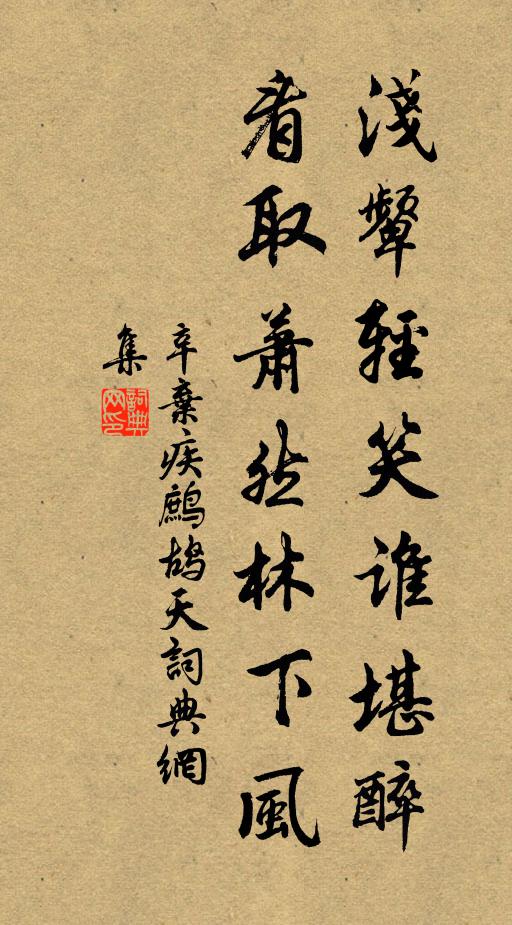 淺顰輕笑誰堪醉
看取蕭然林下風
辛棄疾鷓鴣天詞典網
集
詞典
网印